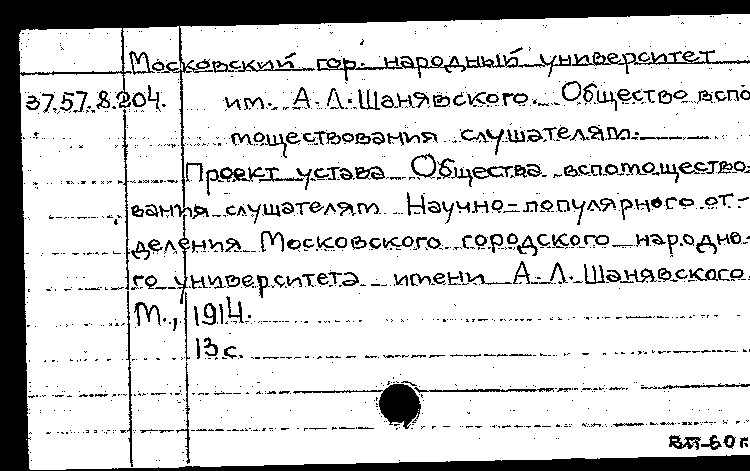 Московский гор. народный университет
37.57.8.204. им. А.Л.Шанявского. Общество вспо
моществования слушателям.
Проект устава Общества вспомощество-
вания слушателям Научно-популярного от-
деления Московского городского народно-
го университета имени А.Л.Шанявского
М., 1914.
13 с.
ВП-60г.